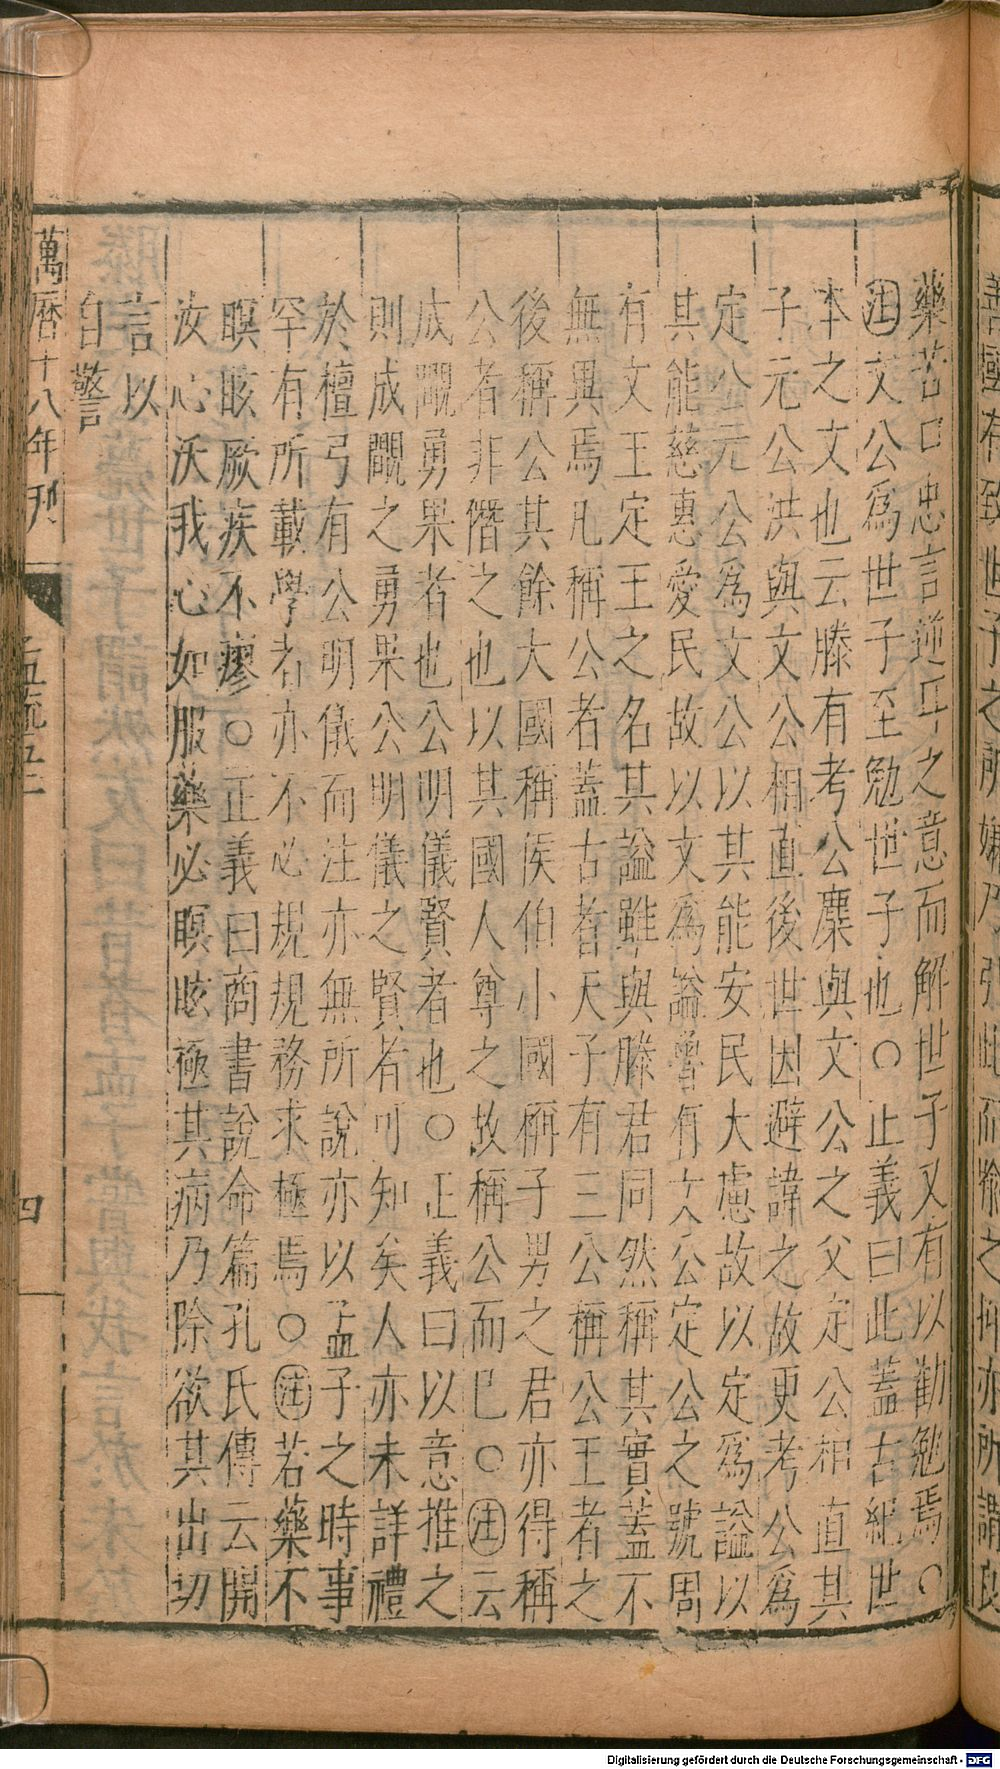 藥苦口忠言逆耳之意而解世子又有以勸勉焉○
注文公為世子至勉世子也○正義曰此蓋古紀世
本之文也云滕有考公麋與文公之父定公相直其
子元公洪與文公相直後世因避諱之故更考公為
定公元公為文公以其能安民大慮故以定為謚以
其能慈惠愛民故以文為謚魯有文公定公之號周
有文王定王之名其謚雖與滕君同然稱其實蓋不
無異焉凡稱公者蓋古者天子有三公稱公王者之
後稱公其餘大國稱侯伯小國稱子男之君亦得稱
公者非僭之也以其國人尊之故稱公而已○注云
成覸勇果者也公明儀賢者也○正義曰以意推之
則成覸之勇果公明儀之賢者可知矣人亦未詳禮
於檀弓有公明儀而注亦無所說亦以孟子之時事
罕有所載學者亦不必規規務求極焉○注若藥不
瞑眩厥疾不瘳○正義曰商書說命篇孔氏傳云開
汝心沃我心如服藥必瞑眩極其病乃除欲其出切
言以
自警
萬曆十八年刊
孟疏五上
四
Digitalisierung gefördert durch die Deutsche Forschungsgemeinschaft - DFG